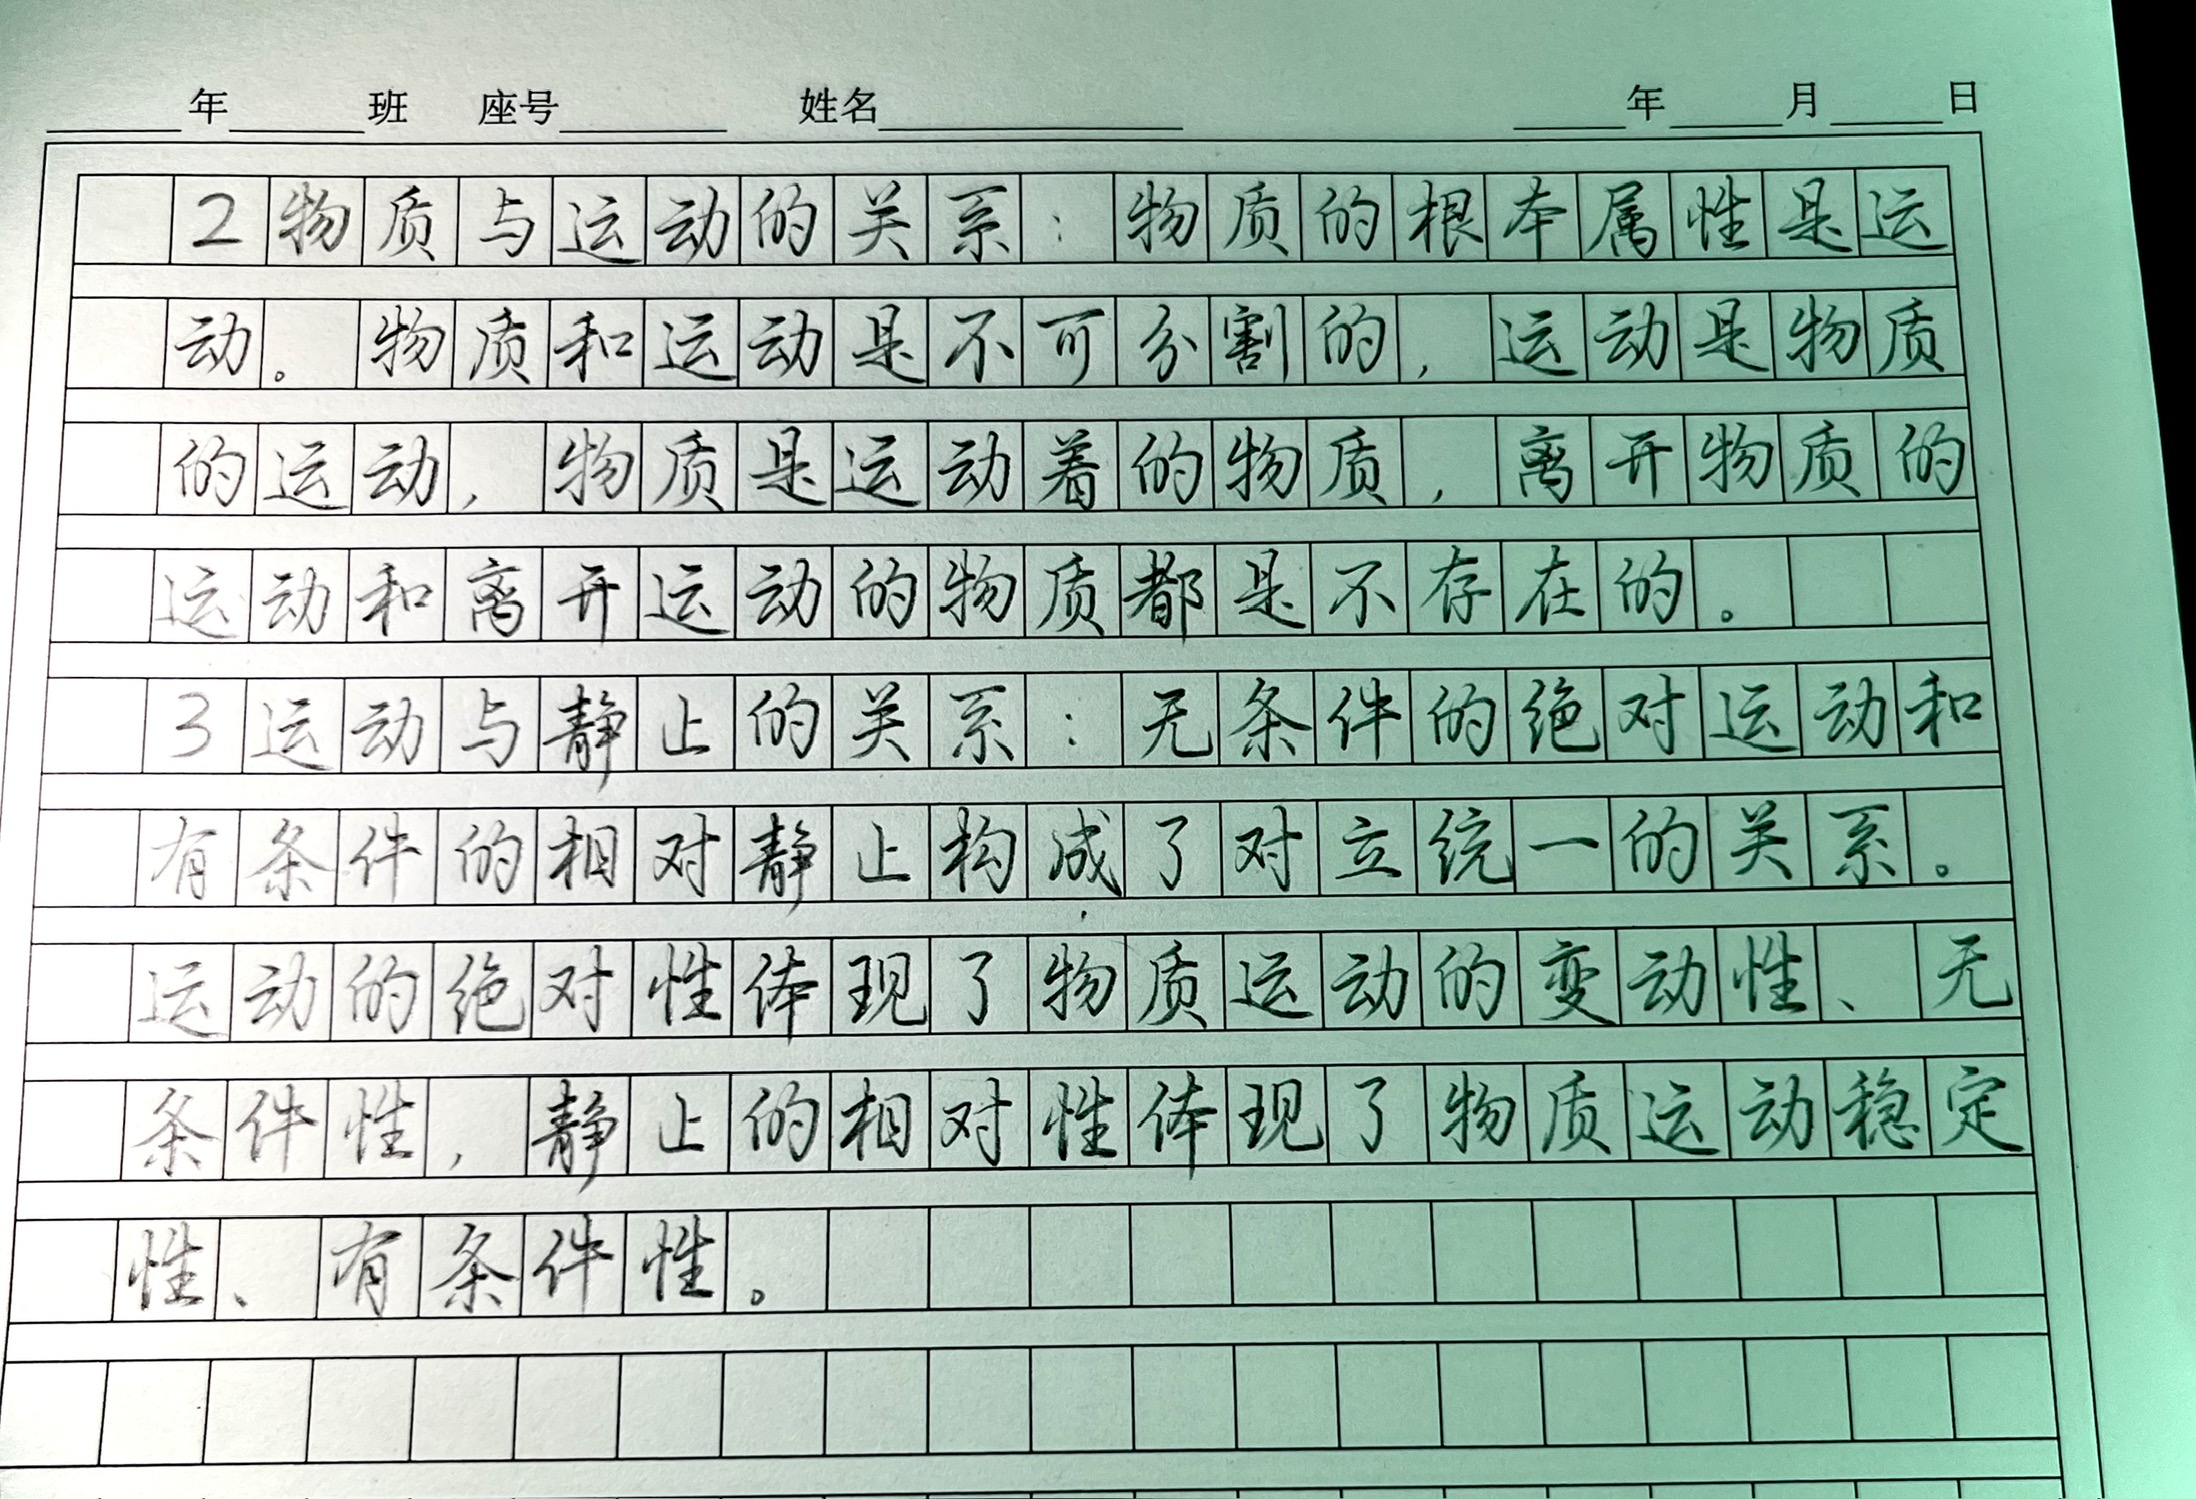 年 班 座号 姓名 年 月 日
2物质与运动的关系:物质的根本属性是运
动。物质和运动是不可分割的,运动是物质
的运动,物质是运动着的物质,离开物质的
运动和离开运动的物质都是不存在的。
3运动与静止的关系:无条件的绝对运动和
有条件的相对静止构成了对立统一的关系。
运动的绝对性体现了物质运动的变动性、无
条件性,静止的相对性体现了物质运动稳定
性、有条件性。